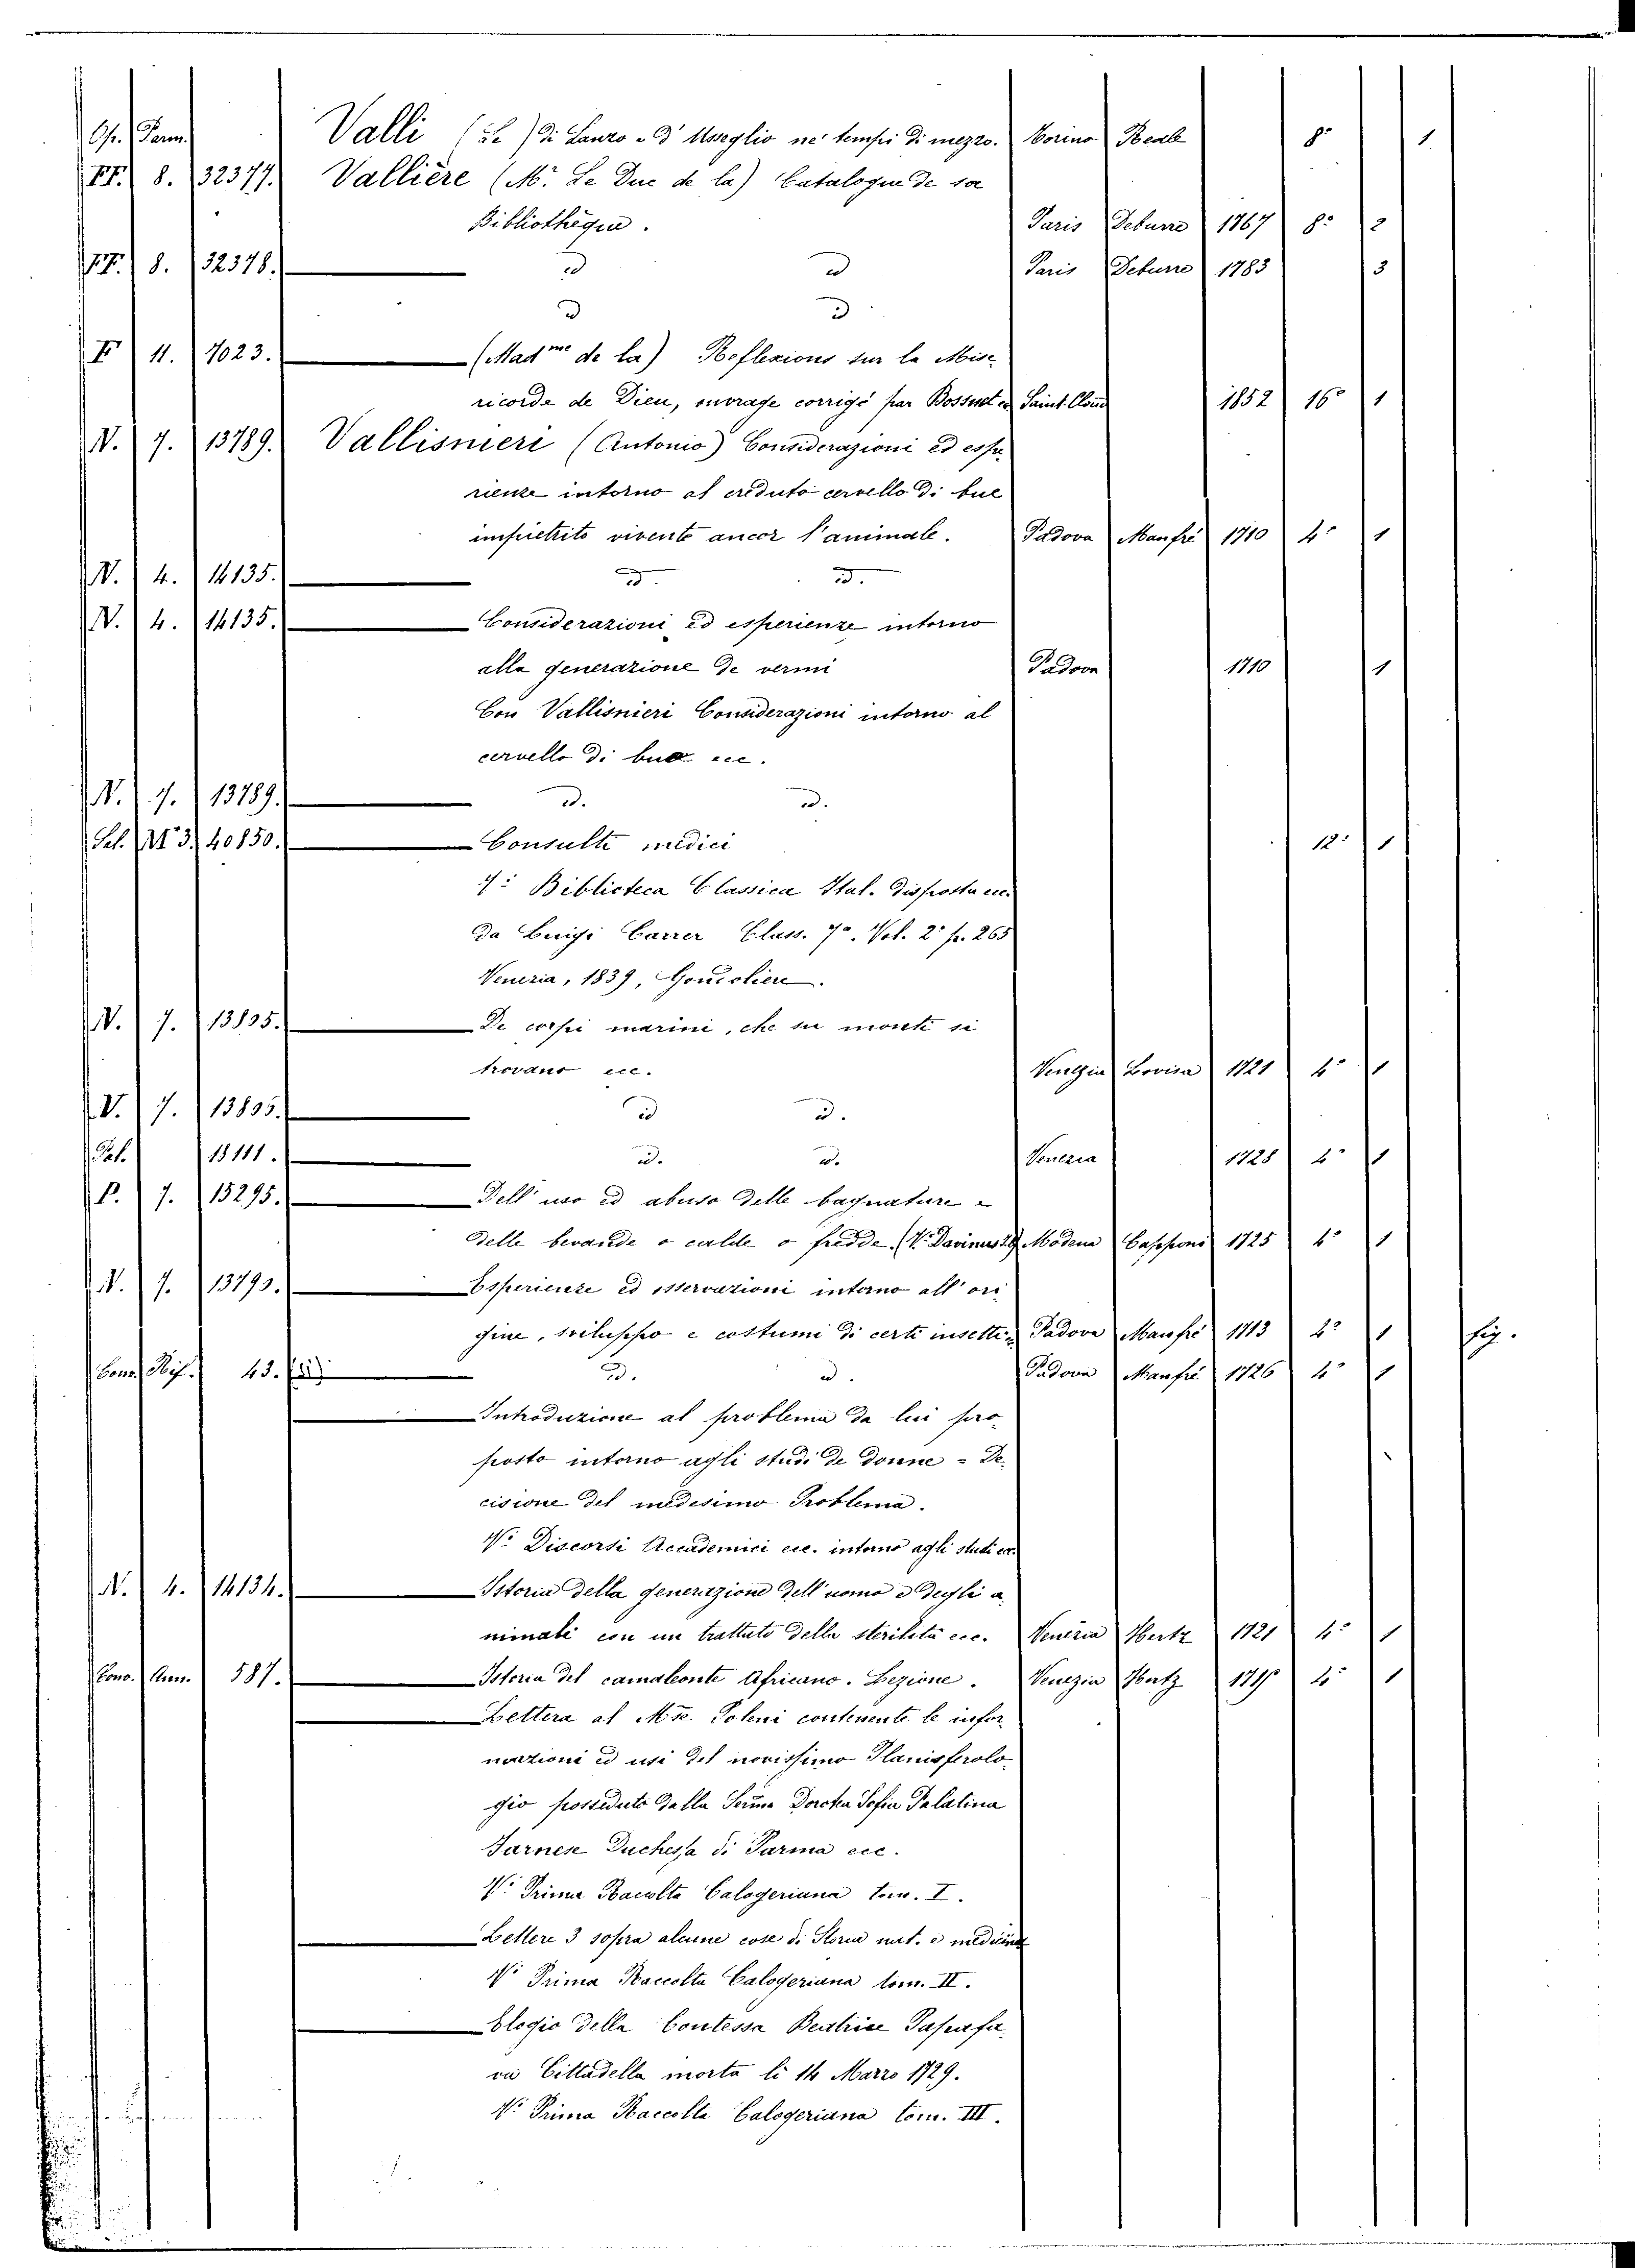 Op. Parm. Valli (Le) di Lanzo e d'Usseglio ne' tempi di mezzo. Torino Reale 8° 1
FF. 8. 32377. Vallière (M.r Le Duc de la) Catalogue de sa
Bibliothèque. Paris Debure 1767 8° 2
FF. 8. 32378. id id Paris Debure 1783 3
id id
F 11. 7023. (Mad.me de la) Reflexions sur la Mise-
ricorde de Dieu, ouvrage corrigé par Bossuet Saint Cloud 1852 16° 1
N. 7. 13789. Vallisnieri (Antonio) Considerazioni ed espe-
rienze intorno al creduto cervello di bue
impietrito vivente ancor l'animale. Padova Manfrè 1710 4° 1
N. 4. 14135. id. id.
N. 4. 14135. Considerazioni ed esperienze intorno
alla generazione de vermi Padova 1710 1
Con Vallisnieri Considerazioni intorno al
cervello di bue ecc.
N. 7. 13789. id. id.
Sel. N° 3. 40850. Consulti medici 12° 1
V: Biblioteca Classica Ital. disposta ecc.
da Luigi Carrer Class. 7a. Vol. 2° p. 265
Venezia, 1839, Gondoliere.
N. 7. 13805. De corpi marini, che su monti si
trovano ecc. Venezia Lovisa 1721 4° 1
V. 7. 13805. id id.
Pal. 18111. id. id. Venezia 1728 4° 1
P. 7. 15295. Dell'uso ed abuso delle bagnature e
delle bevande o calde o fredde. Modena Capponi 1725 4° 1
N. 7. 13793. Esperienze ed osservazioni intorno all'ori-
gine, sviluppo e costumi di certi insetti Padova Manfrè 1713 4° 1 fig.
Cono. Rip. 43. id. id. Padova Manfrè 1726 4° 1
Introduzione al problema da lui pro-
posto intorno agli studi de donne = De-
cisione del medesimo Problema.
V: Discorsi Accademici ecc. intorno agli studi ecc.
N. 4. 14134. Istoria della generazione dell'uomo e degli a-
nimali con un trattato della sterilità ecc. Venezia Hertz 1721 4° 1
Cono. Ann. 587. Istoria del camaleonte Africano. Lezione. Venezia Hertz 4° 1
Lettera al M.se Poleni contenente le infor-
mazioni ed usi del novissimo Planisferolo-
gio posseduto dalla Serma Dorotea Sofia Palatina
Farnese Duchessa di Parma ecc.
V: Prima Raccolta Calogeriana tom. I.
Lettere 3 sopra alcune cose di Storia nat. e medicina
V: Prima Raccolta Calogeriana tom. II.
Elogio della Contessa Beatrice Papafa-
va Cittadella morta li 14 Marzo 1729.
V: Prima Raccolta Calogeriana tom. III.